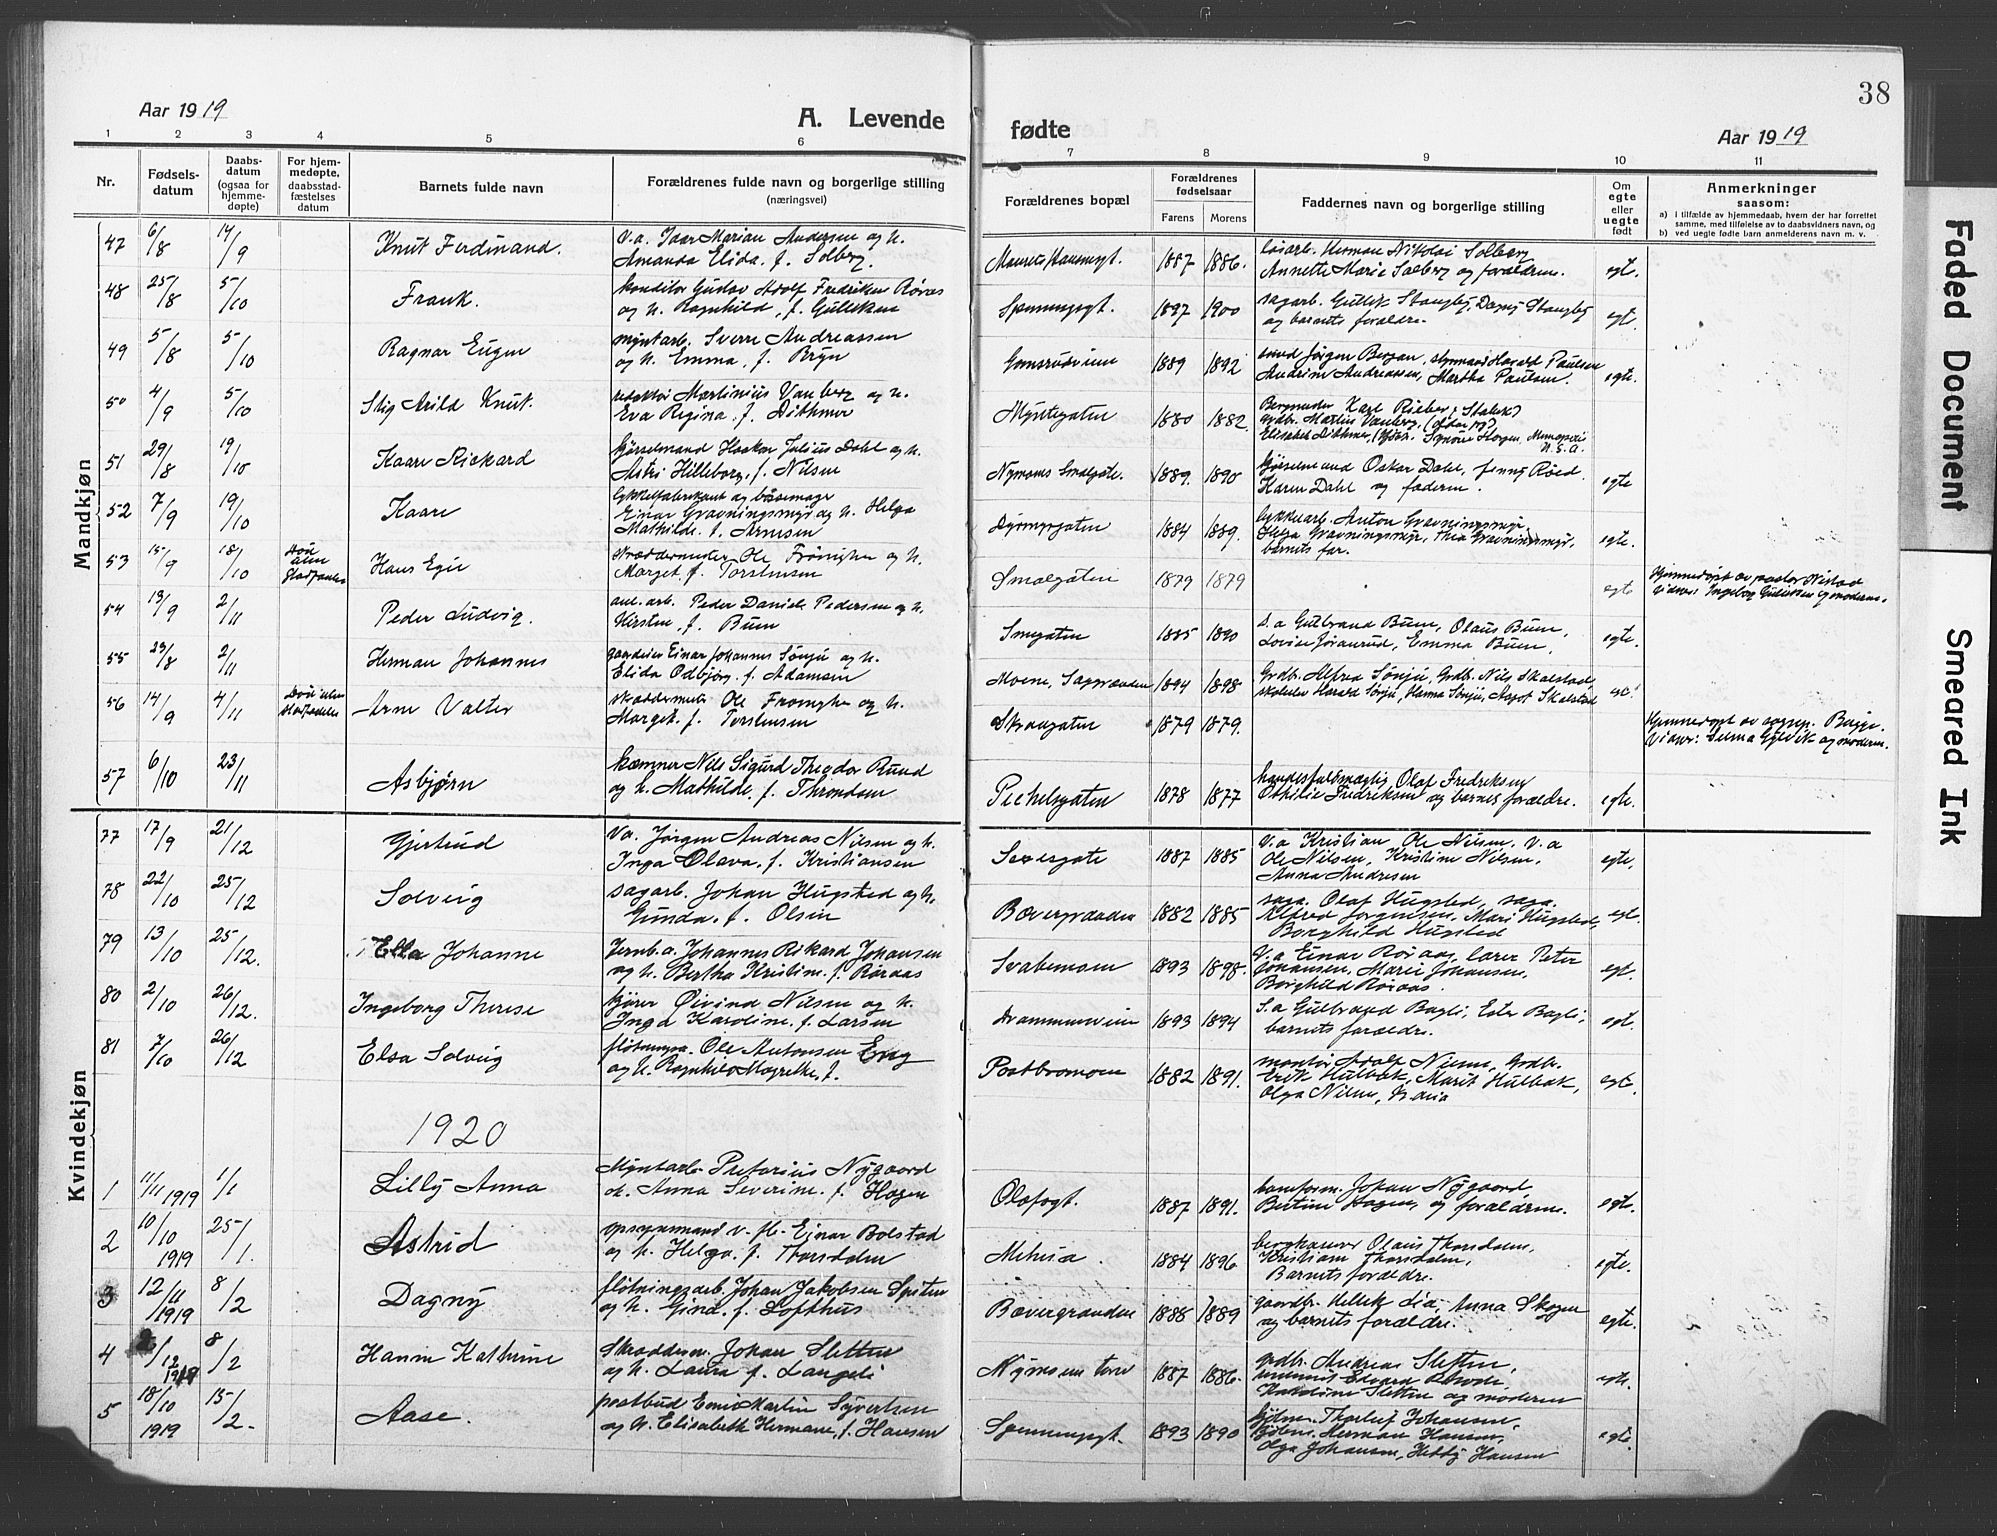 38
Aar 1919
A. Levende
fødte
Aar 1919
1 2 3 4 5 6 7 8 9 10 11
Nr.
Fødsels-
datum
Daabs-
datum
(ogsaa for
hjemme-
døpte)
For hjem-
medøpte,
daabsstad-
fæstelses
datum
Barnets fulde navn
Forældrenes fulde navn og borgerlige stilling
(næringsvei)
Forældrenes bopæl
Forældrenes
fødselsaar
Farens Morens
Faddernes navn og borgerlige stilling
Om
egte
eller
uegte
født
Anmerkninger
saasom:
a) i tilfælde av hjemmedaab, hvem der har forrettet
samme, med tilføielse av to daabsvidners navn, og
b) ved uegte født barn anmelderens navn m. v.
Mandkjøn
47 6/8 14/9 Knut Ferdinand. v.a. Ivar Marian Andersen og h.
Amanda Elida. f. Solberg. 1887 1886. Herman Nikolai Solberg
Annette Marie Solberg og forældrene. egte.
48 25/8 5/10 Frank. konditor Gustav Adolf Fredriksen Røraas
og h. Ragnhild, f. Gulliksen Spenningsgt. 1897 1900 sagarb. Gullik Stangby, Dagny Stangby
og barnets forældre. egte.
49 5/8 5/10 Ragnar Eugen myntarb. Sverre Andreassen
og h. Emma. f. Bryn Gomsrudveien 1889 1892 Jørgen Bergan, Harald Paulsen
Andrine Andreassen, Martha Paulsen. egte.
50 4/9 5/10 Stig Arild Knut. redaktør Martinius Vanberg og h.
Eva Regina. f. Dithmer Myntegaten 1880 1882. Karl Rieber
grdbr. Martin Vanberg,
Elisabet Dithmer, Signore Horgen, Minneapolis
U.S.A.
51 29/8 19/10 Kaare Rickard kjørselmand Haakon Julius Dahl og h.
Astri Hilleborg, f. Nilsen Nymoens Smalgate. 1889. 1890 kjørselmand Oskar Dahl, Jenny Røed.
Karen Dahl og faderen. egte
52 7/9 19/10 Kaare Lykkefabrikant og bøssemager
Einar Gravningsmyr og h. Helga
Mathilde. f. Arnesen Dyrmyrgaten 1884 1889. Anton Gravningsmyr,
Helga Gravningsmyr, Thea Gravningsmyr,
barnets far. egte.
53 15/9 18/10 død uden Stadfæstelse Hans Egil skræddermester Ole Frønigher og h.
Marget. f. Torstensen Smalgaten 1879 1879 egte Hjemmedøpt av pastor Nistad
Vidner: Ingeborg Gulliksen og moderen.
54 19/9 2/11 Peder Ludvig. anl.arb. Peder Daniel Pedersen og h.
Kirsten, f. Buen Smegaten 1885 1890 S.a Gulbrand Buen, Olaus Buen,
Lovise Joramrud, Emma Buen, egte.
55 23/8 2/11 Herman Johannes gaardeier Einar Johannes Sønju og h.
Elida Odbjørg. f. Adamsen Moene, Saggrænden 1894 1898 Grdb. Alfred Sønju, Grdb. Nils Skalstad
Harald Sønju, Hanna Sønju, Aagot Skalstad
56 14/9 4/11 Død uden stadfæstelse Arne Valter skræddermester Ole Frønigher og h.
Marget. f. Torstensen Skraugaten 1879 1879. Hjemmedøpt av sogнepr. Bugge.
Vidner: Selma Gjelvik og moderen.
57 6/10 23/11 Asbjørn kæmner Nils Sigurd Theodor Ruud
og h. Mathilde. f. Throndsen Peckelsgaten 1878 1877 handelsfuldmægtig Olaf Fredriksen
Othilie Fredriksen og barnets forældre. egte.
Kvindekjøn
77 17/9 21/12 Gjertrud V.a. Jørgen Andreas Nilsen og h.
Inga Olava. f. Kristiansen 1887 1885 V.a Kristian Ole Nilsen. V.a
Ole Nilsen, Kristine Nilsen,
Anna Andresen egte.
78 22/10 25/12 Solveig sagarb. Johan Hugsted og h.
Gunda. f. Olsen Bævergrænden 1882 1885 saga. Olaf Hugsted, saga.
Alfred Jørgensen, Mari Hugsted,
Borghild Hugsted egt.
79 13/10 25/12. Ella Johanne Jernb.a. Johannes Rikard Johansen
og h. Bertha Kristine. f. Røraas Svabemoen 1893 1898. V.a Einar Røraas, lærer Peter
Johansen, Marie Johansen,
Borghild Røraas. egt.
80 2/10 26/12. Ingeborg Therese kjører Øivind Nilsen og h.
Inga Karoline. f. Larsen Drammensveien 1893 1894 S.a Gulbrand Bagli, Ester Bagli,
barnets forældre. egt.
81 7/10 26/12 Elsa Solveig Ole Antonsen Eng
og h. Ragnhild Magrethe, f. Postbromoen 1882 1891. montør Adolf Nilsen, Grdb.
Erik Hulbak, Marit Hulbak,
Olga Nilsen, egte.
1920
1 11/11 1919 1/1 Lilly Anna Myntarb. Pretorius Nygaard
h. Anna Severine. f. Hagen Olafsgt. 1887 1891. Johan Nygaard
Bertine Hagen, og forældrene. egte.
2 10/10 1919 25/1. Astrid opsynsmand v. fl. Einar Bolstad
og h. Helga. f. Thorsdalen Meheia. 1884 1896 berghauer Olaus Thorsdalen,
Kristiane Thorsdalen,
Barnets forældre. egte.
3 12/11 1919 8/2 Dagny fløtningsarb. Johan Jakobsen Spiten
og h. Gina. f. Lofthus Bævergrænden 1888 1889 gaardbr. Kittik Lia, Anna Skogen
og barnets forældre. egte.
4 2/12 1919 8/2 Hanna Kathrine Skrædderm. Johan Sletten
og h. Laura f. Langeli Nymoens torv 1887 1886. grdbr. Andreas Sletten,
Edvard
Karoline Sletten og moderen egte.
5 18/10 1919 15/2. Aase. postbud Emil Martin Syvertsen
og h. Elisabeth Hermane, f. Hansen Spenningsgt. 1893 1890 Thorleif Johansen,
Herman Hansen,
Olga Johansen, Hetty Hansen egte.
Faded Document
Smeared Ink